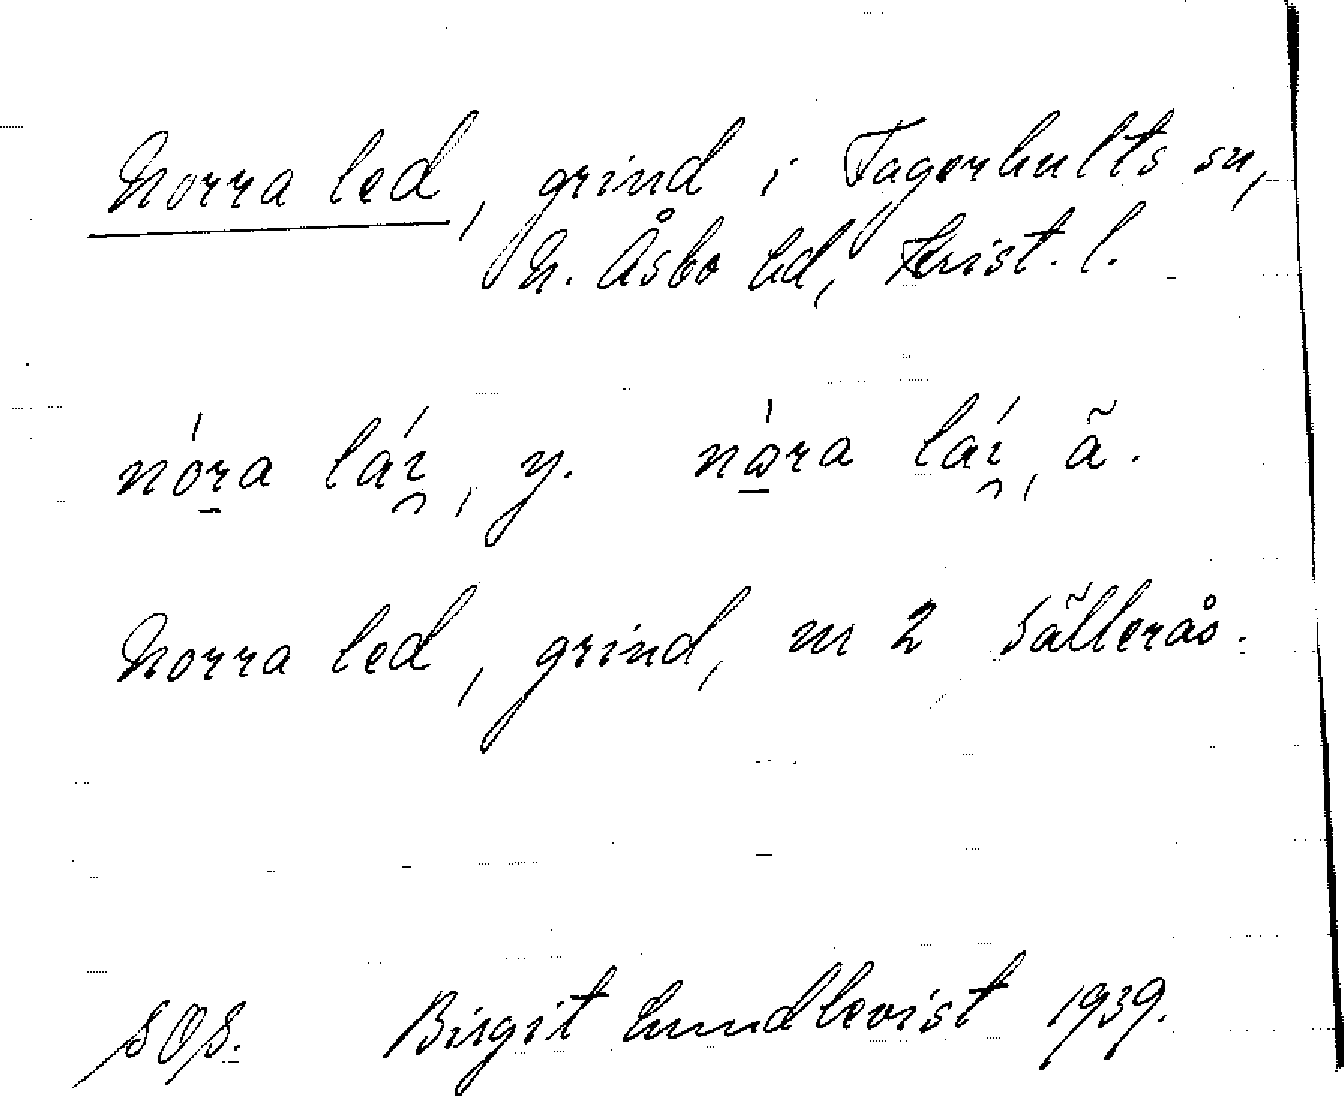 Norra led, grind i Fagerhults sn,
N. Åsbo hd, Krist. l.
nóra láı, y. nòra láı, ã.
Norra led, grind, m 2 Sãllerås.
SOS. Birgit Lundkvist 1939.